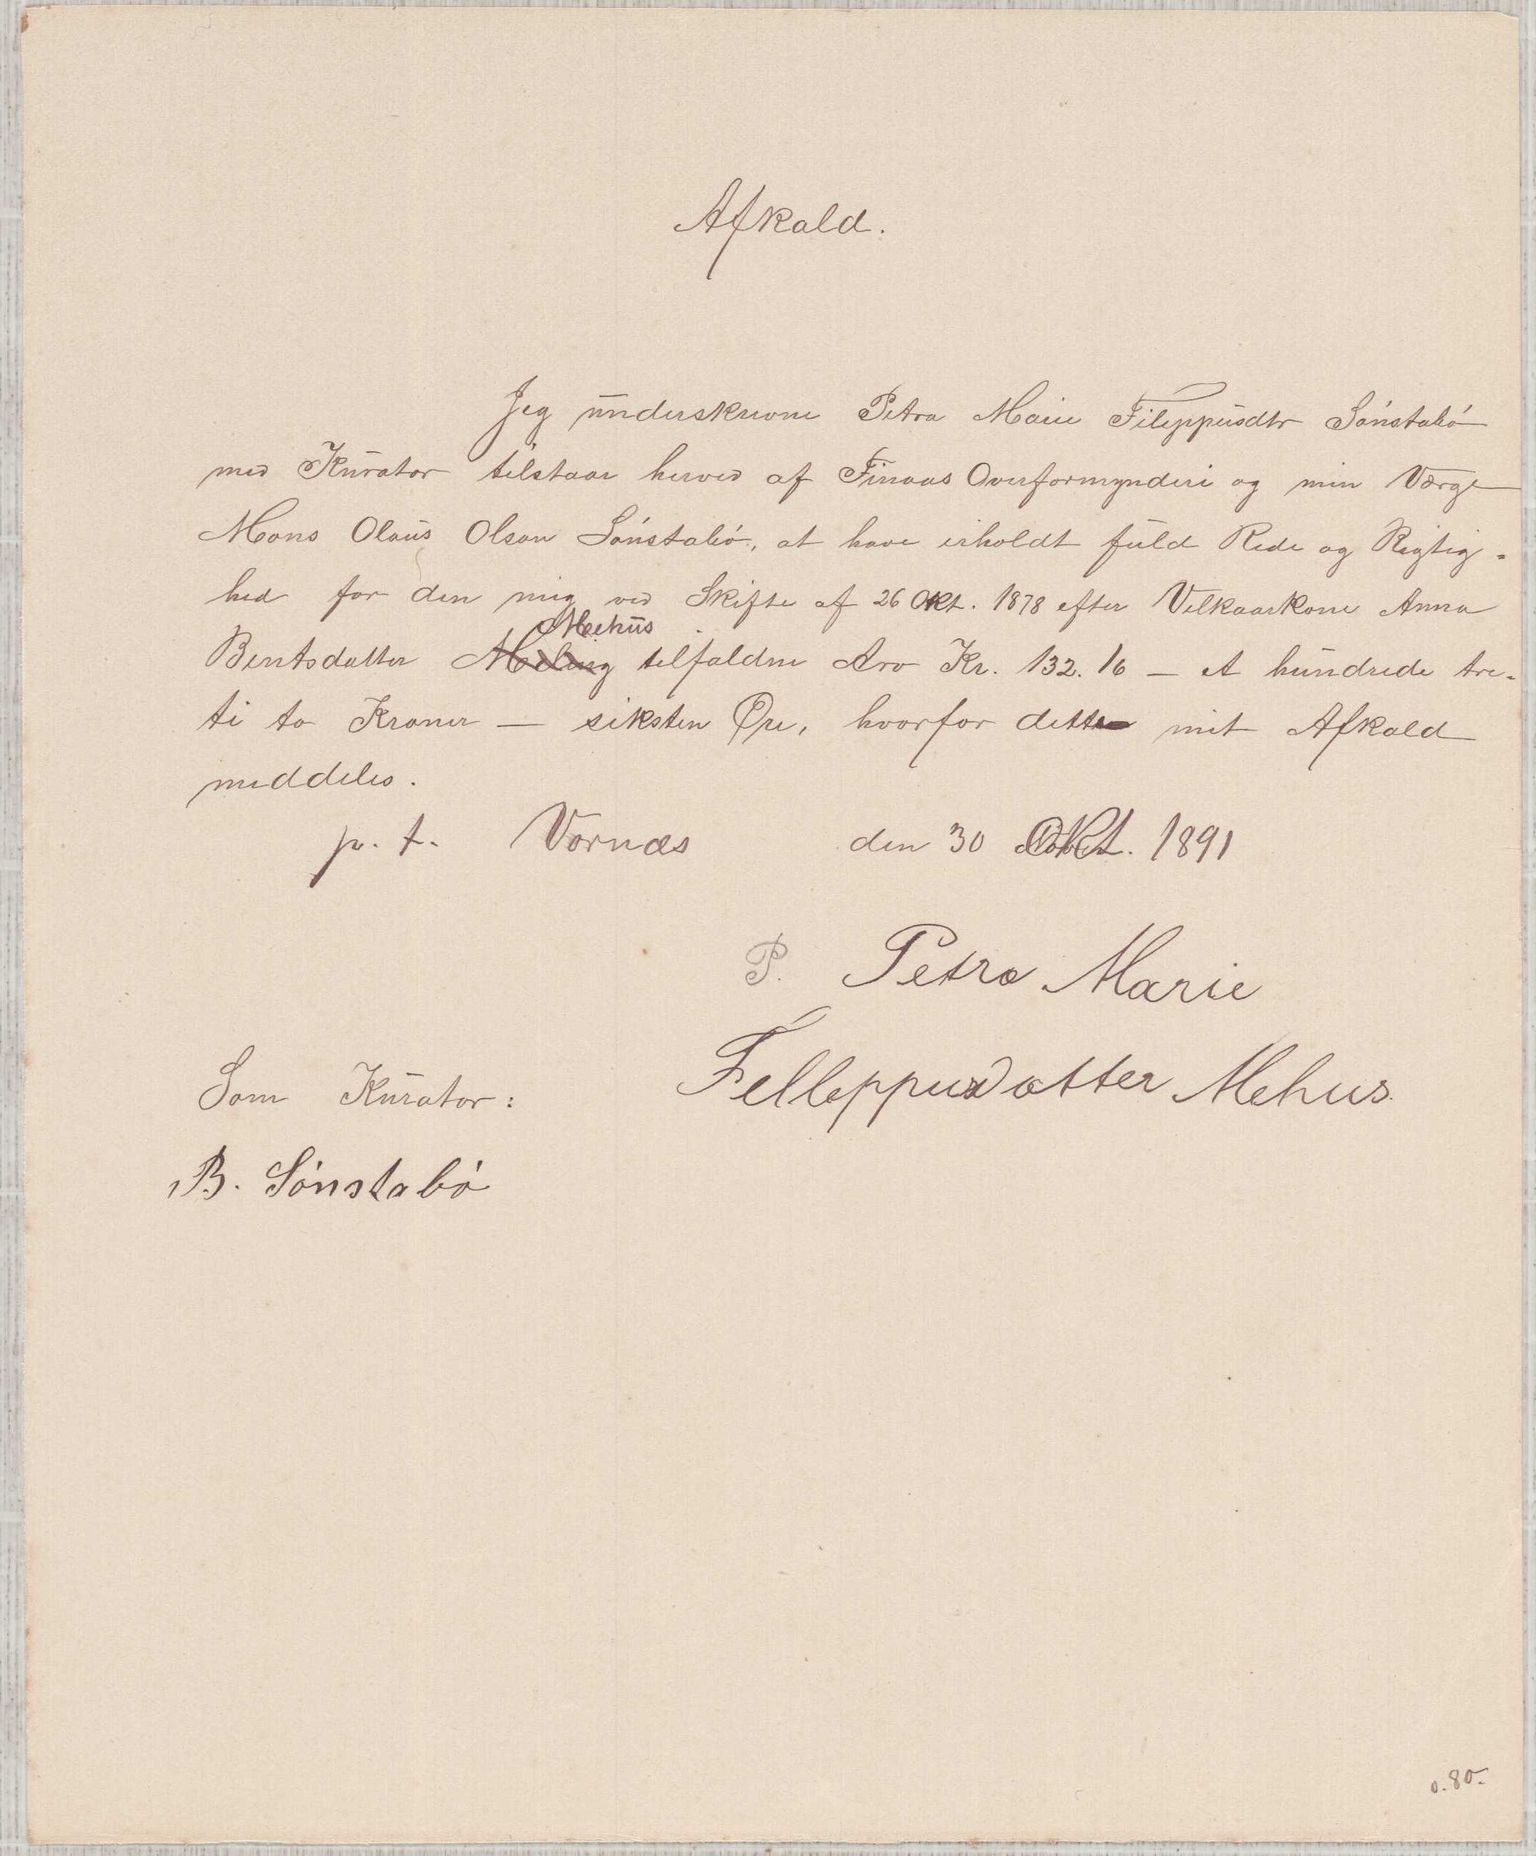 Afkald.
Jeg underskrevne Petra Marie Fileppusdtr Sónstabó
med Kurator tilstaar herved af Finaas Overformynderi og min Værge
Mons Olaus Olson Sónstabó, at have erholdt fuld Rede og Rigtig-
hed for den mig ved Skifte af 26 Okt. 1878 efter Vilkaarkone Anna
Mehus
Bentsdatter Meling tilfaldne Arv Kr. 132.16 — et hundrede tre-
ti to Kroner — seksten Øre, hvorfor dette mit Afkald
meddeles.
p. t. Vornæs den 30 Okt. 1891
P. Petra Marie
Felleppusdatter Mehus.
Som Kurator:
B. Sónstabó
0.80.